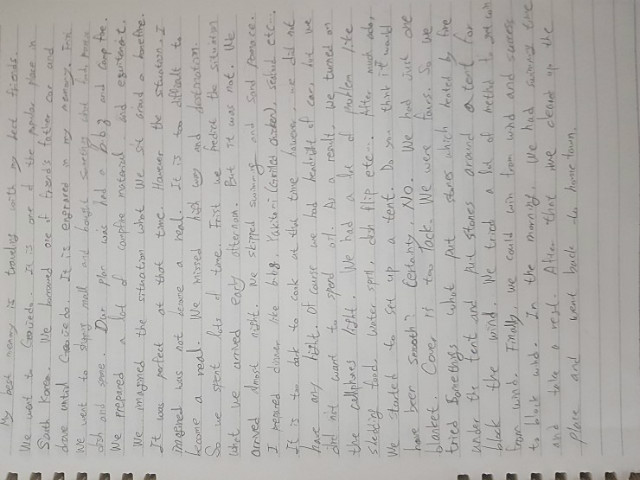 My best memory is traveling with my best friends.
We went to Geoje do. It is one of the popular place in
South Korea. We borrowed one of friend's father car and
drove until Geoje do. It is engraved in my memory. First
we went to shopping mall and bought somethings about food, house,
dish and some. Our plan was had a b.b.g and camp fire.
We prepared a lot of campfire material and equitment.
We imagined the situation what we sit around a bonefire.
It was perfect at that time. However the situation I
imagined was not become a real. It is too difficult to
become a real. We missed high way and destination.
So we spent lots of time. First we predict the situation
what we arrived early afternoon. But it was not. We
arrived almost night. We skipped swimming and sand
I prepared dinner like b.b.g. Yakitori (Grilled chicken), seafood etc...
It is too dark to cook at that time however, we did not
have any light. Of cause we had headlight of car, but we
did not want to spend oil. As a result, we turned on
the cellphones light. We had a lot of problem like
food, water spill, dish flip etc... After much ado,
We started to set up a tent. Do you think it would
have been smooth? Certainly, No. We had just one
blanket. Cover is too lack. We were fours. So we
tried somethings what put stones which heated by fire
under the tent and put stones around a tent for
block the wind. We tried a lot of method to win
from wind. Finally, we could win from wind and success
to block wind. In the morning. We had swimming time
and take a rest. After that we cleant up the
place and went back to home town.